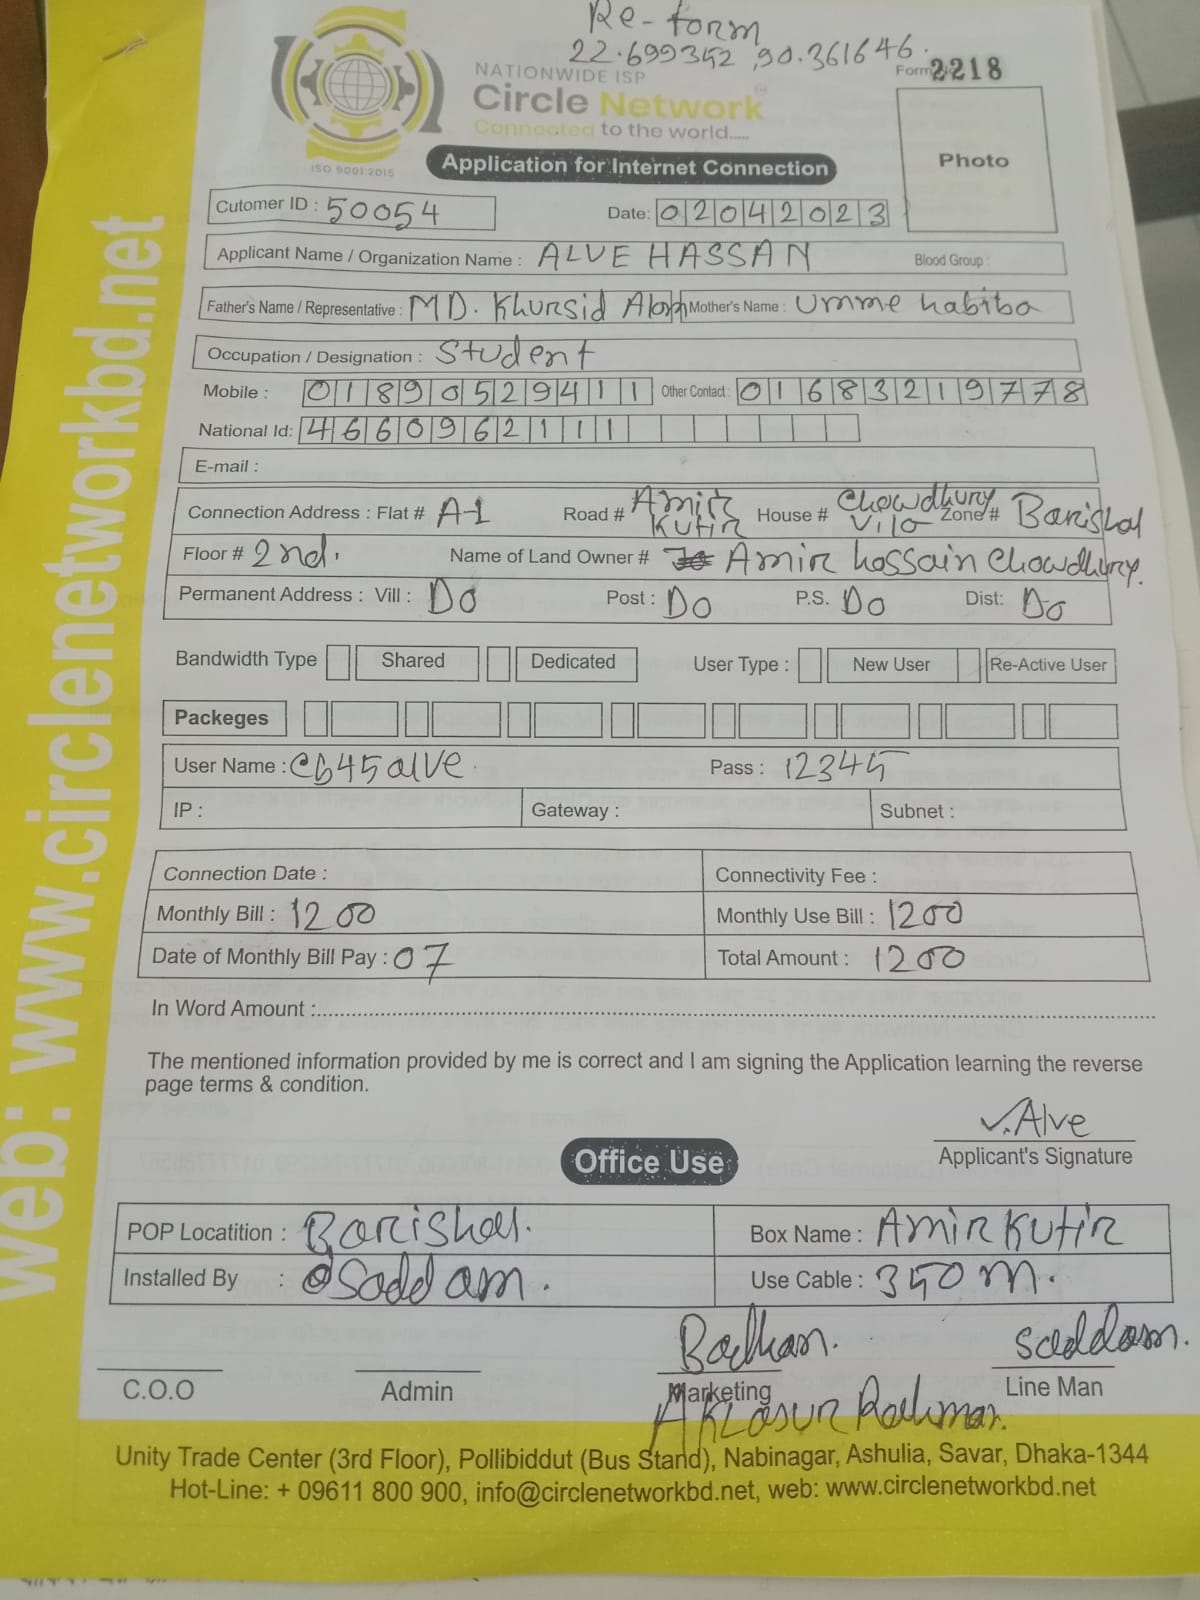 Re-form
22.699352,90.361646.
NATIONWIDE ISP
Form 2218
Circle Network
Connected to the world.....
ISO 9001:2015
Application for Internet Connection
Photo
Cutomer ID : 50054 Date: 02042023
Applicant Name / Organization Name : ALVE HASSAN Blood Group :
Father's Name / Representative : MD. Khursid Alam Mother's Name : Umme habiba
Occupation / Designation : Student
Mobile : 01890529411 Other Contact : 01683219778
National Id: 4660962111
E-mail :
Connection Address : Flat # A-1 Road # Amir Kutir House # Chowdhury Vila Zone # Barishal
Floor # 2nd. Name of Land Owner # Amir hossain Chowdhury.
Permanent Address : Vill : Do Post : Do P.S. Do Dist: Do
Bandwidth Type Shared Dedicated User Type : New User Re-Active User
Packeges
User Name : cb45alve Pass : 12345
IP : Gateway : Subnet :
Connection Date : Connectivity Fee :
Monthly Bill : 1200 Monthly Use Bill : 1200
Date of Monthly Bill Pay : 07 Total Amount : 1200
In Word Amount :
The mentioned information provided by me is correct and I am signing the Application learning the reverse
page terms & condition.
Alve
Applicant's Signature
Office Use
POP Locatition : Barishal. Box Name : Amir Kutir
Installed By : Saddam. Use Cable : 350m.
saddam.
C.O.O Admin Marketing Line Man
Rahman.
Unity Trade Center (3rd Floor), Pollibiddut (Bus Stand), Nabinagar, Ashulia, Savar, Dhaka-1344
Hot-Line: + 09611 800 900, info@circlenetworkbd.net, web: www.circlenetworkbd.net
web: www.circlenetworkbd.net